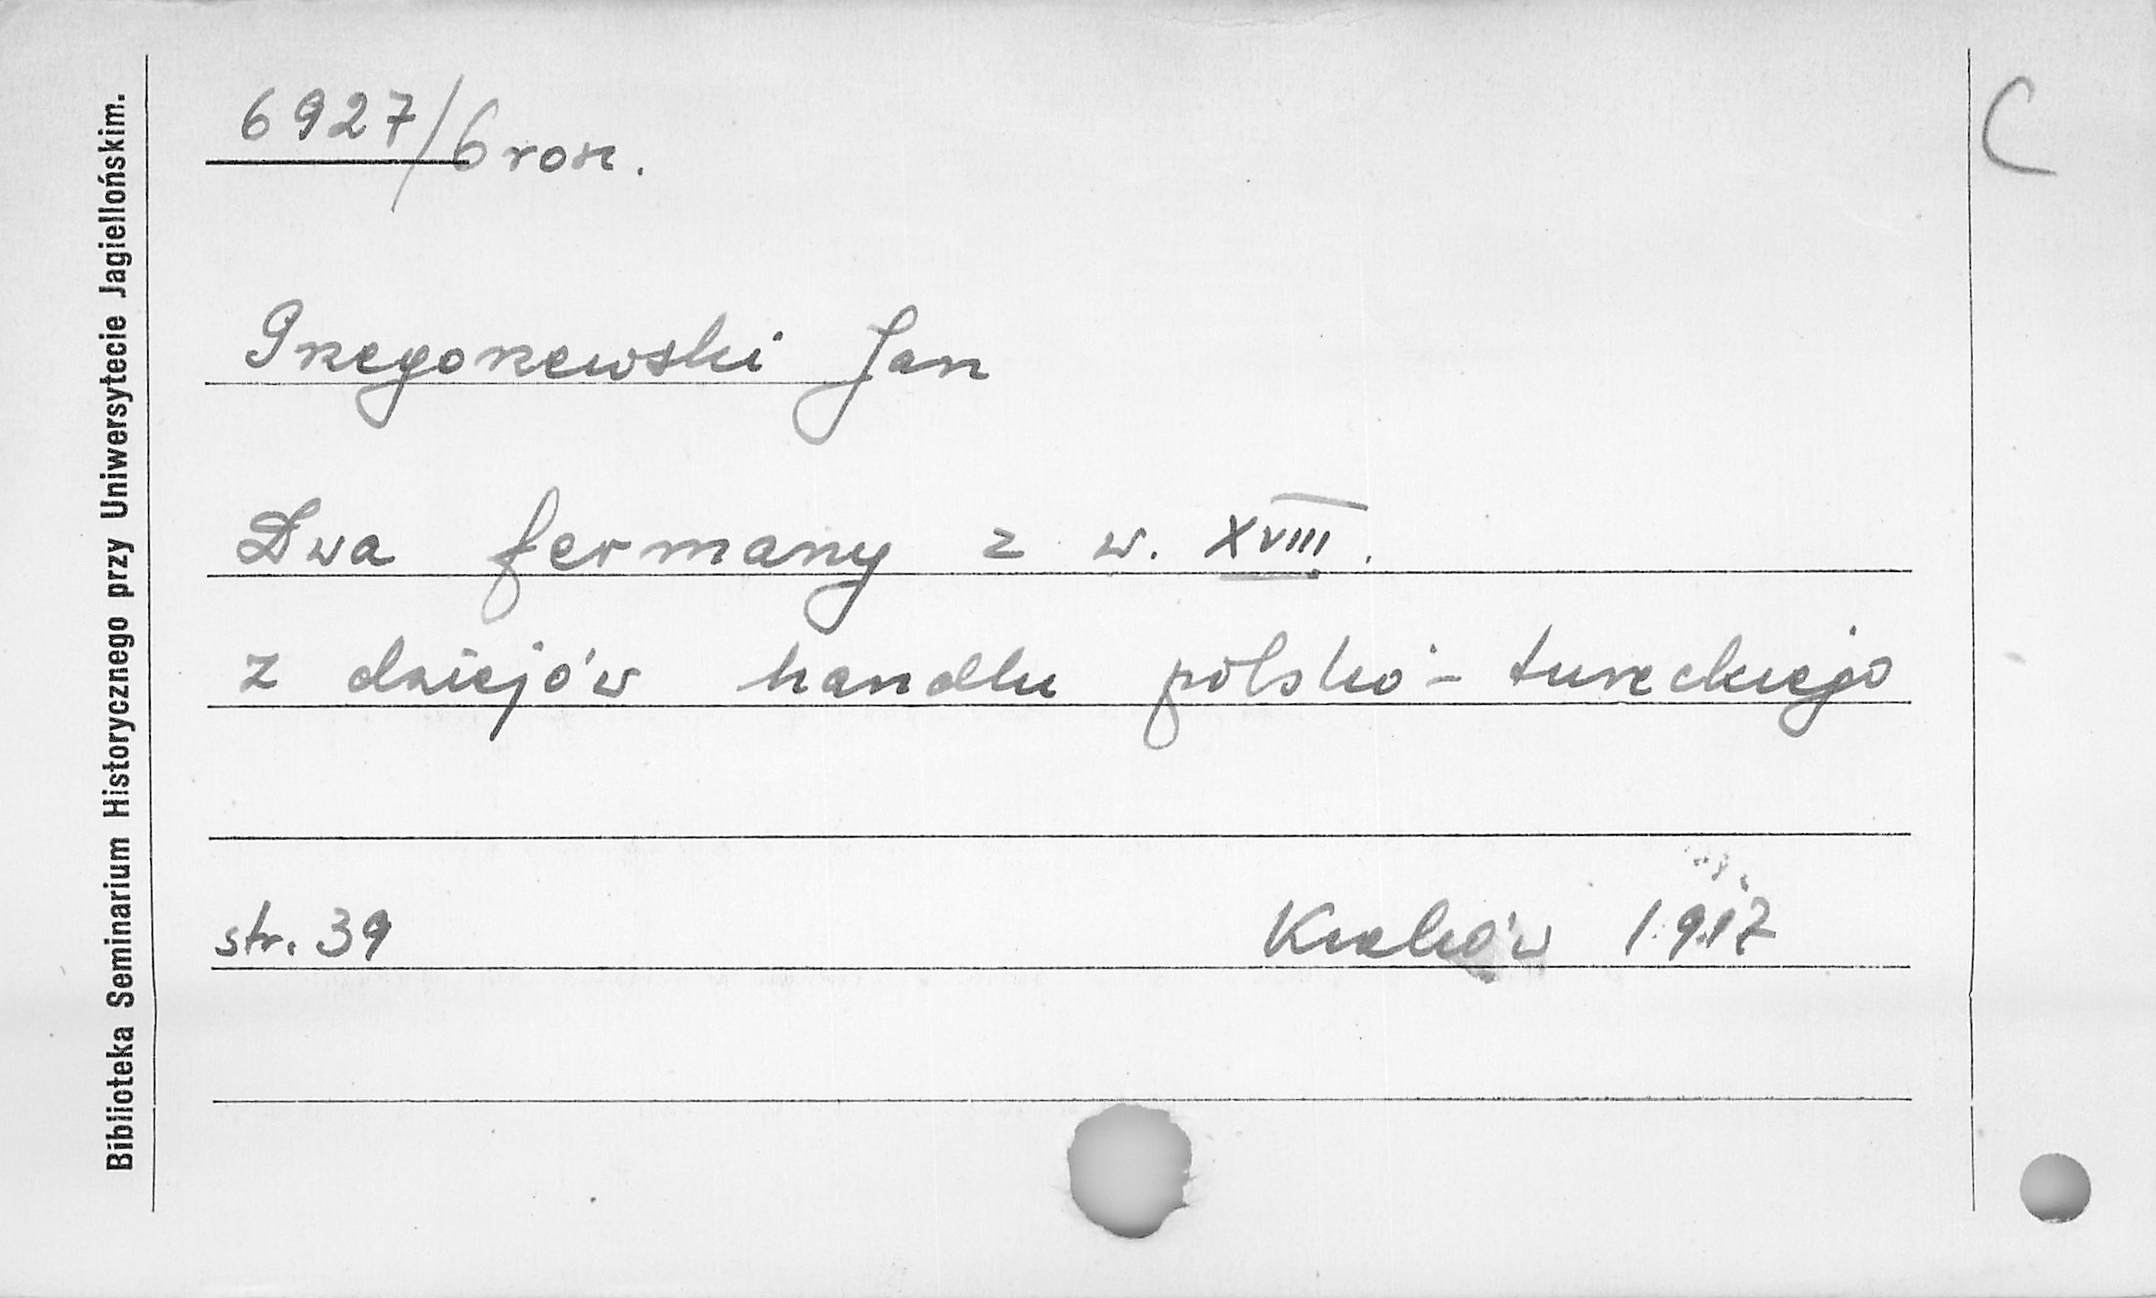 Biblioteka Seminarium Historycznego przy Uniwersytecie Jagiellońskim.
6927/6 rosz.
C
Grzegorzewski Jan
Dwa fermany z w. XVIII.
z dziejów handlu polsko-tureckiego
str. 39 Kraków 1917